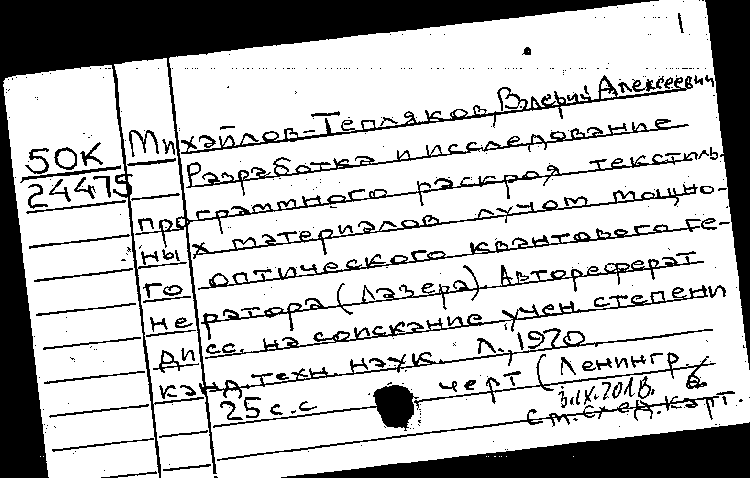 1
Михайлов-Тепляков, Валерий Алексеевич
50К
24475
Разработка и исследование
программного раскроя текстиль-
ных материалов лучом мощно-
го оптического квантового ге-
нератора (лазера). Автореферат
дисс. на соискание учен. степени
канд. техн. наук. Л., 1970.
25 с. с черт (Ленингр.
3.IX.2018.
см. след. карт.